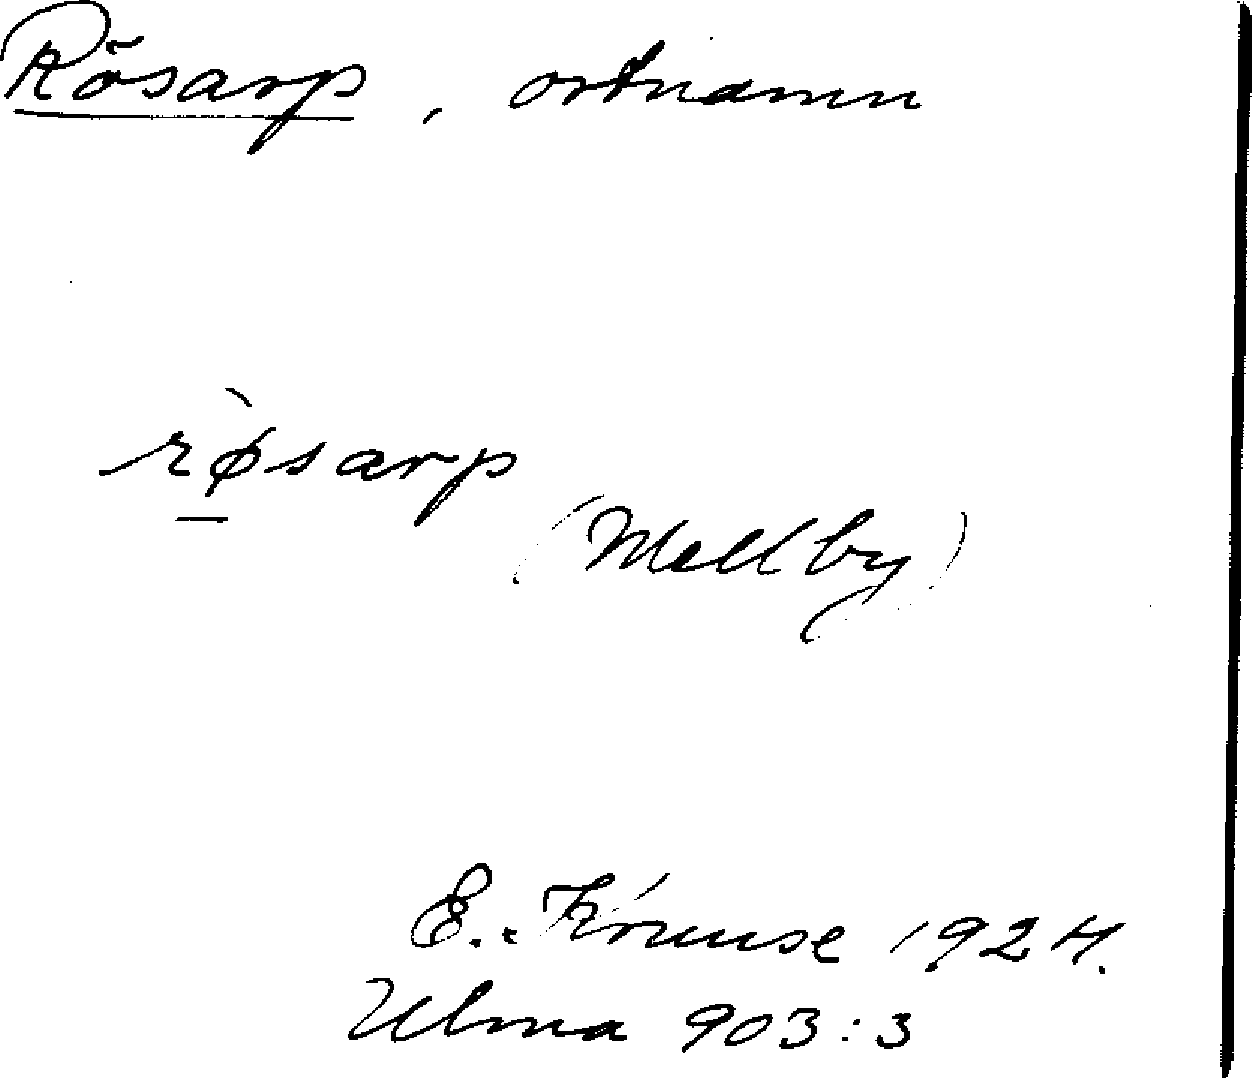 Rösarp, ortnamn
rø̠̀sarp
(Mellby)
E. Kruuse 1924.
Ulma 903:3